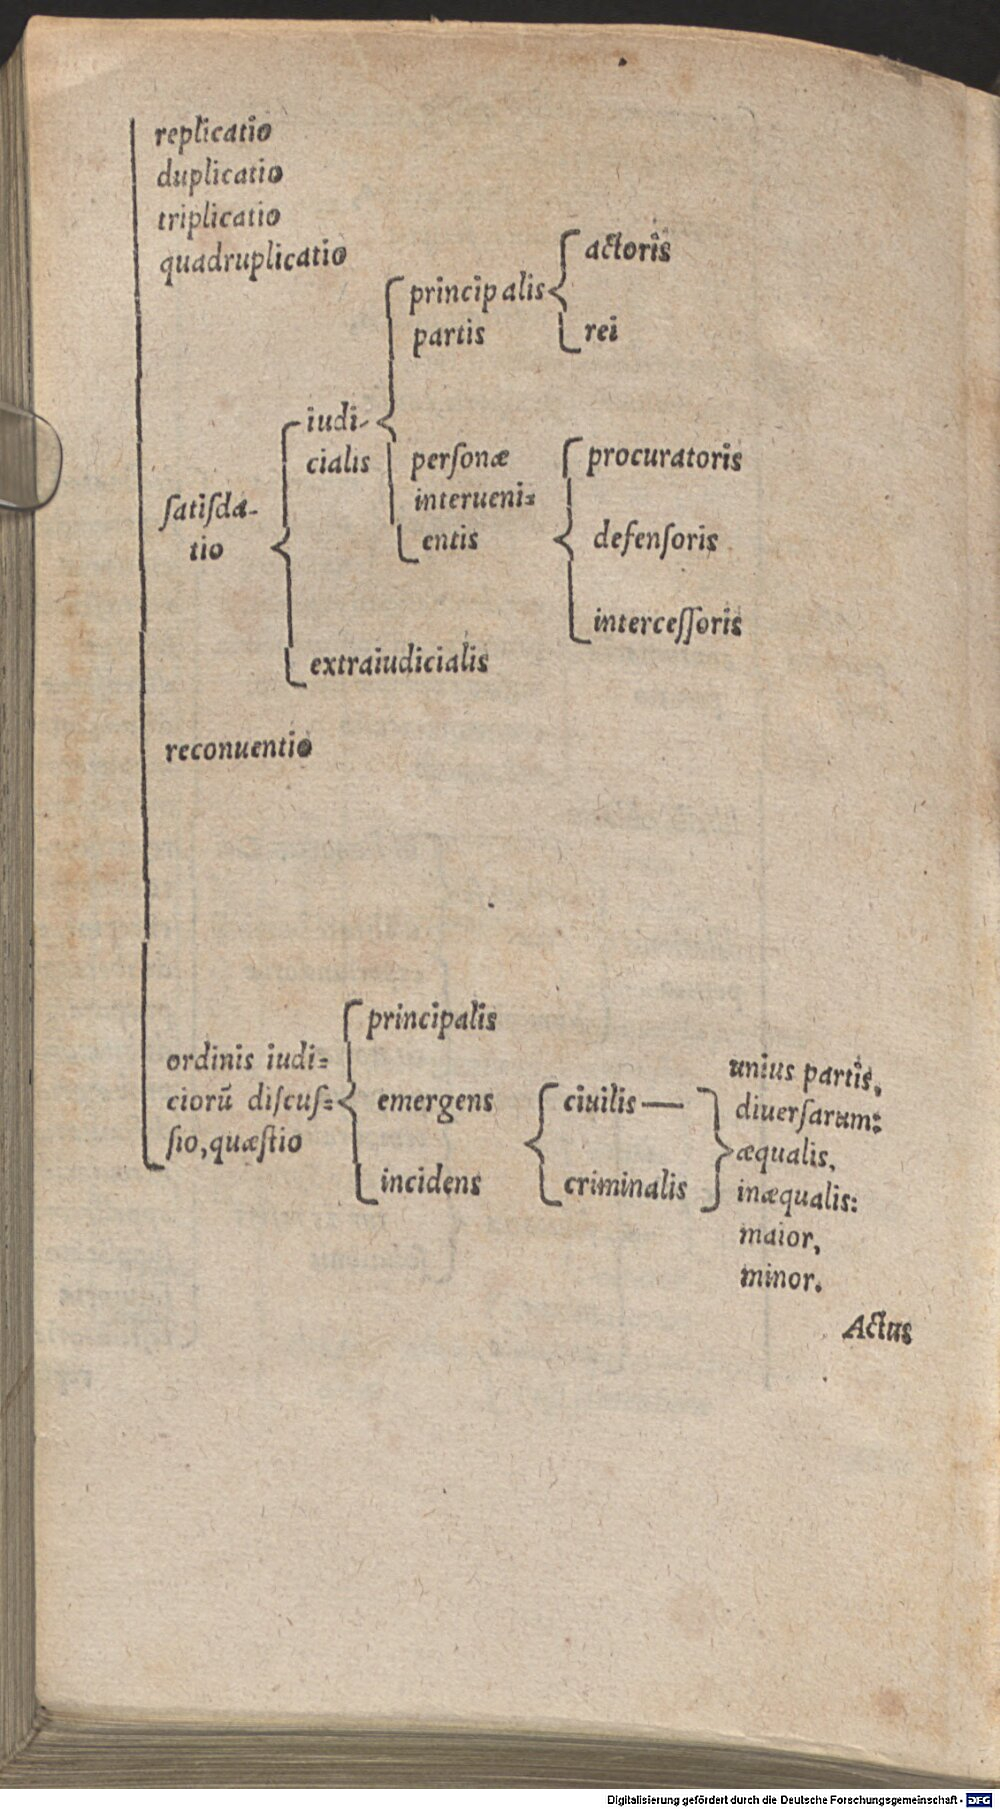 replicatio
duplicatio
triplicatio
quadruplicatio
actoris
principalis
partis
rei
iudi-
cialis
personæ
interueni=
entis
procuratoris
defensoris
intercessoris
satisda-
tio
extraiudicialis
reconuentio
ordinis iudi=
ciorū discus=
sio, quæstio
principalis
emergens
incidens
ciuilis
criminalis
unius partis,
diuersarum:
æqualis,
inæqualis:
maior,
minor.
Actus
Digitalisierung gefördert durch die Deutsche Forschungsgemeinschaft - DFG